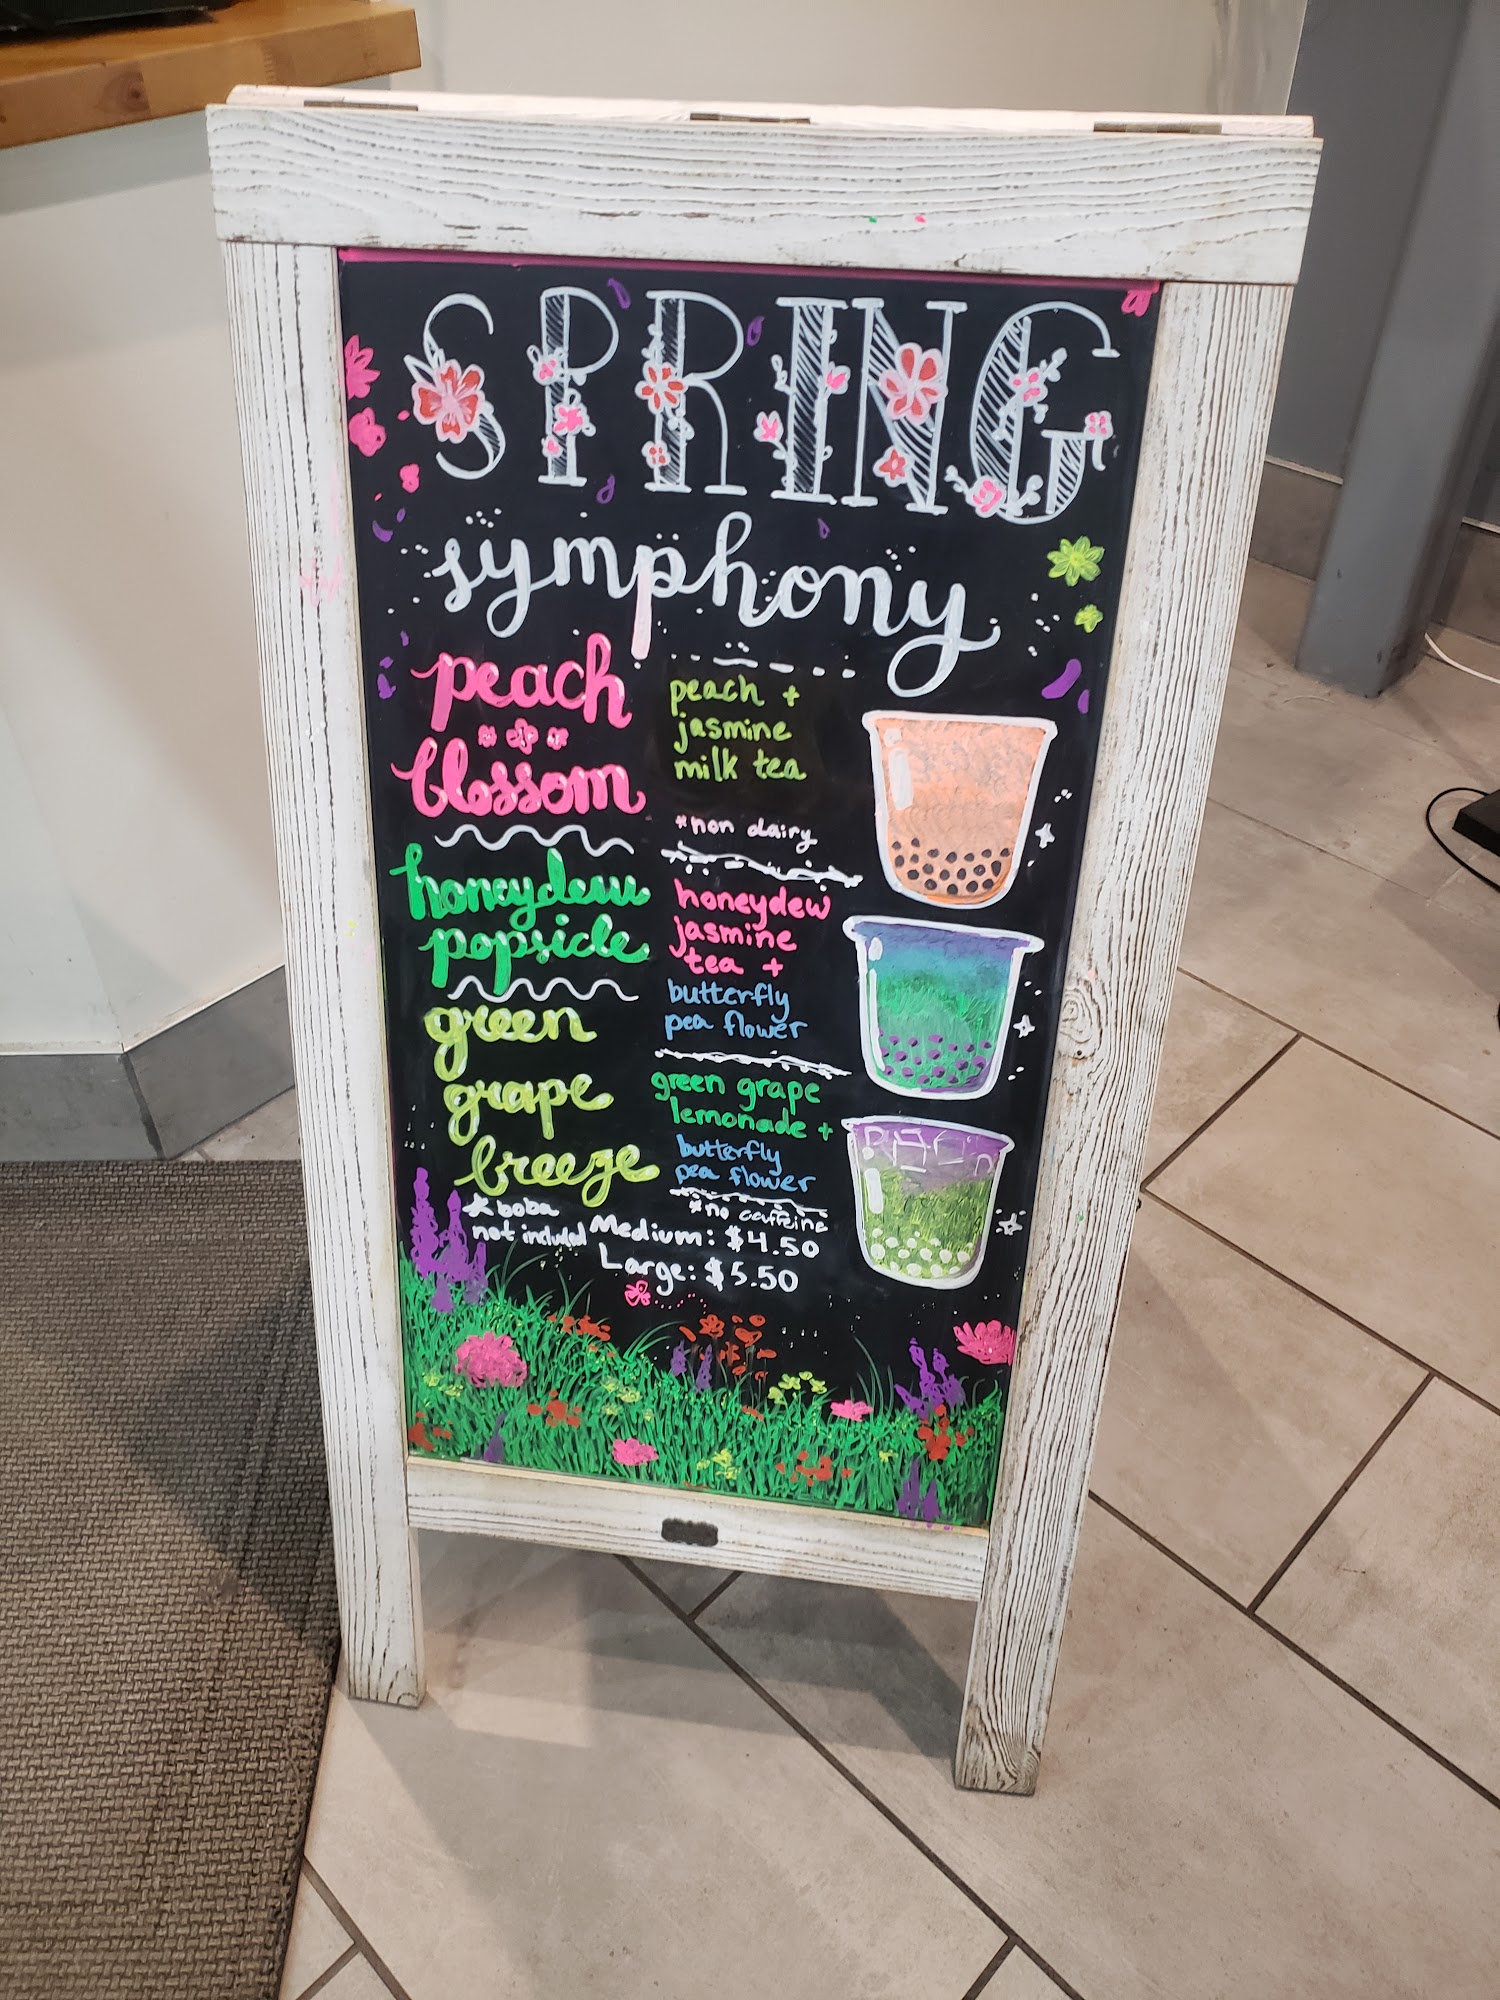 SPRING
symphony
peach
blossom
peach +
jasmine
milk tea
*non dairy
honeydew
popsicle
honeydew
jasmine
tea +
butterfly
pea flower
green
grape
breeze
green grape
lemonade +
butterfly
pea flower
*no caffeine
*boba
not included
Medium: $4.50
Large: $5.50